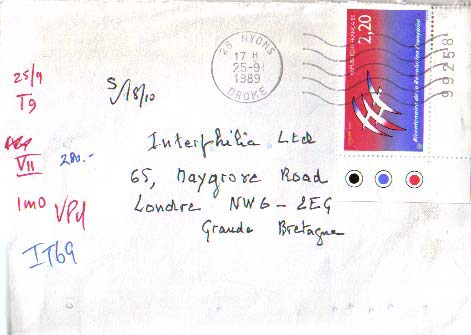 26 NYONS
17 H
25-9
1989
DROME
REPUBLIQUE FRANCAISE
2,20
Bicentenaire de la Révolution Française
992158
25/9
T9
S/18/10
VII
280.-
1m0
VPd
IT69
Interphilia Ltd
65, Maygrove Road
Londre NW6-2EG
Grande Bretagne